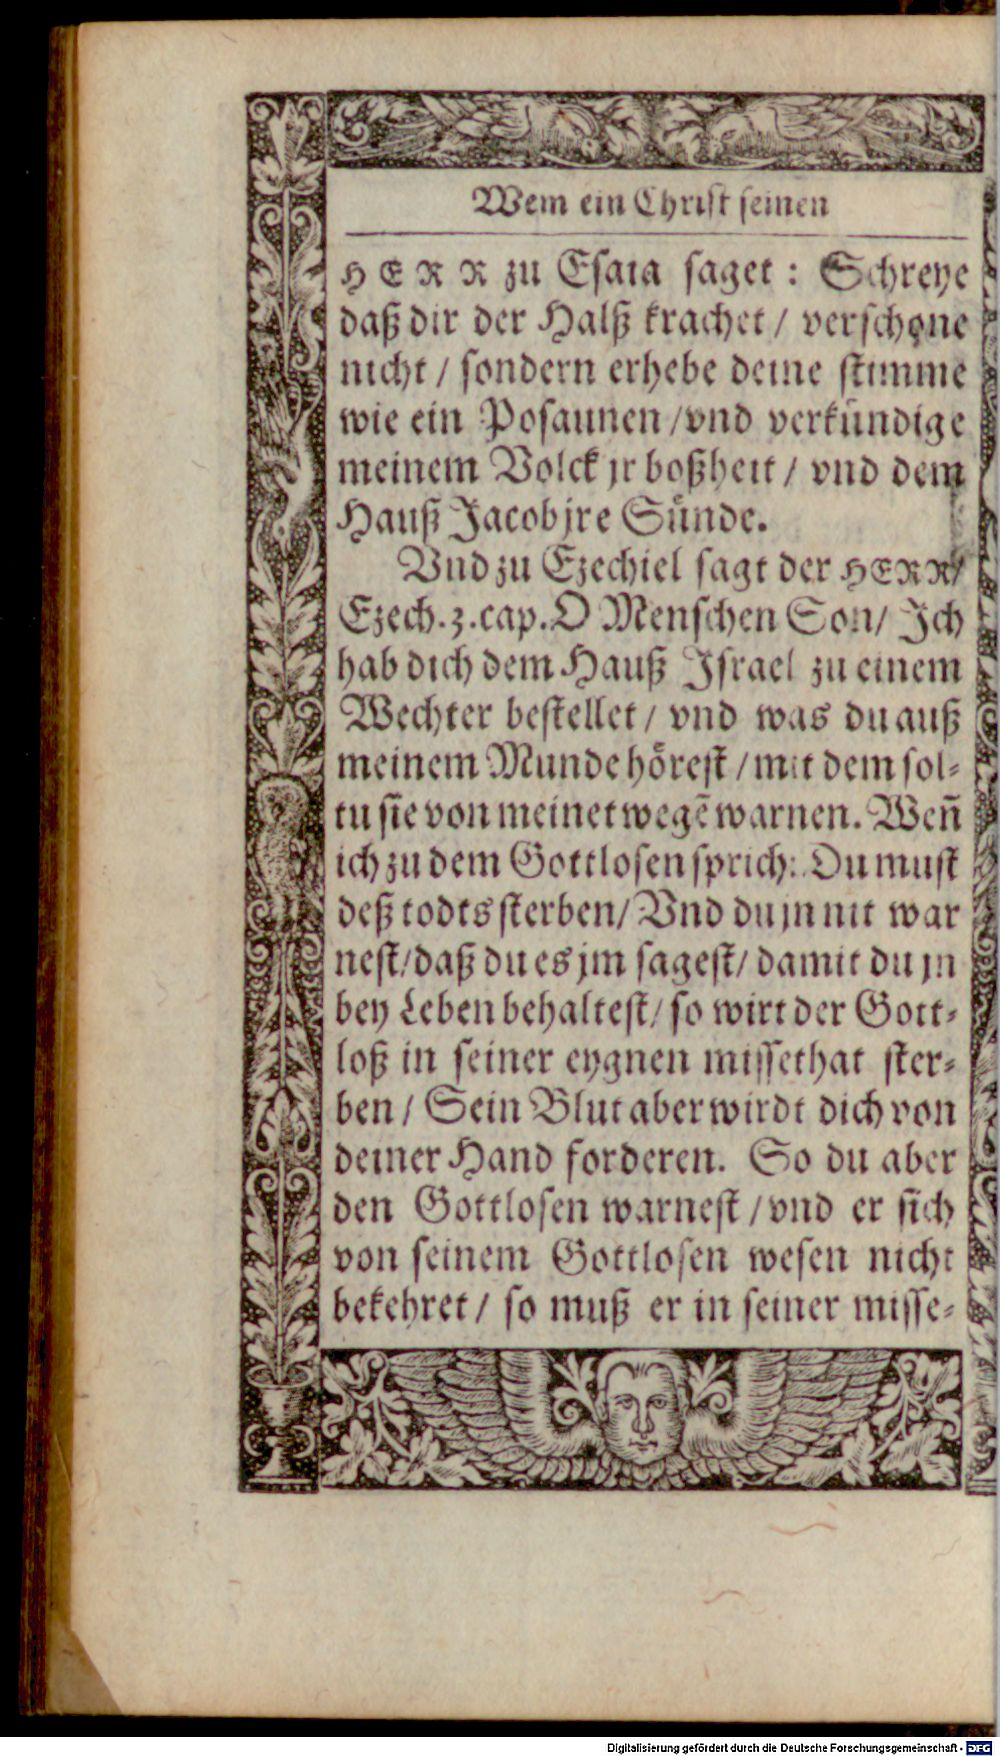 Wem ein Christ seinen
HERR zu Esaia saget: Schreye
daß dir der Halß krachet / verschone
nicht / sondern erhebe deine stimme
wie ein Posaunen / vnd verkündige
meinem Volck jr boßheit / vnd dem
Hauß Jacob jre Sünde.
Vnd zu Ezechiel sagt der HERR /
Ezech. 3. cap. O Menschen Son / Ich
hab dich dem Hauß Israel zu einem
Wechter bestellet / vnd was du auß
meinem Munde hörest / mit dem sol-
tu sie von meinet wegẽ warnen. Weñ
ich zu dem Gottlosen sprich: Du must
deß todts sterben / Vnd du jn nit war
nest / daß du es jm sagest / damit du jn
bey Leben behaltest / so wirt der Gott-
loß in seiner eygnen missethat ster-
ben / Sein Blut aber wirdt dich von
deiner Hand forderen. So du aber
den Gottlosen warnest / vnd er sich
von seinem Gottlosen wesen nicht
bekehret / so muß er in seiner misse-
Digitalisierung gefördert durch die Deutsche Forschungsgemeinschaft - DFG